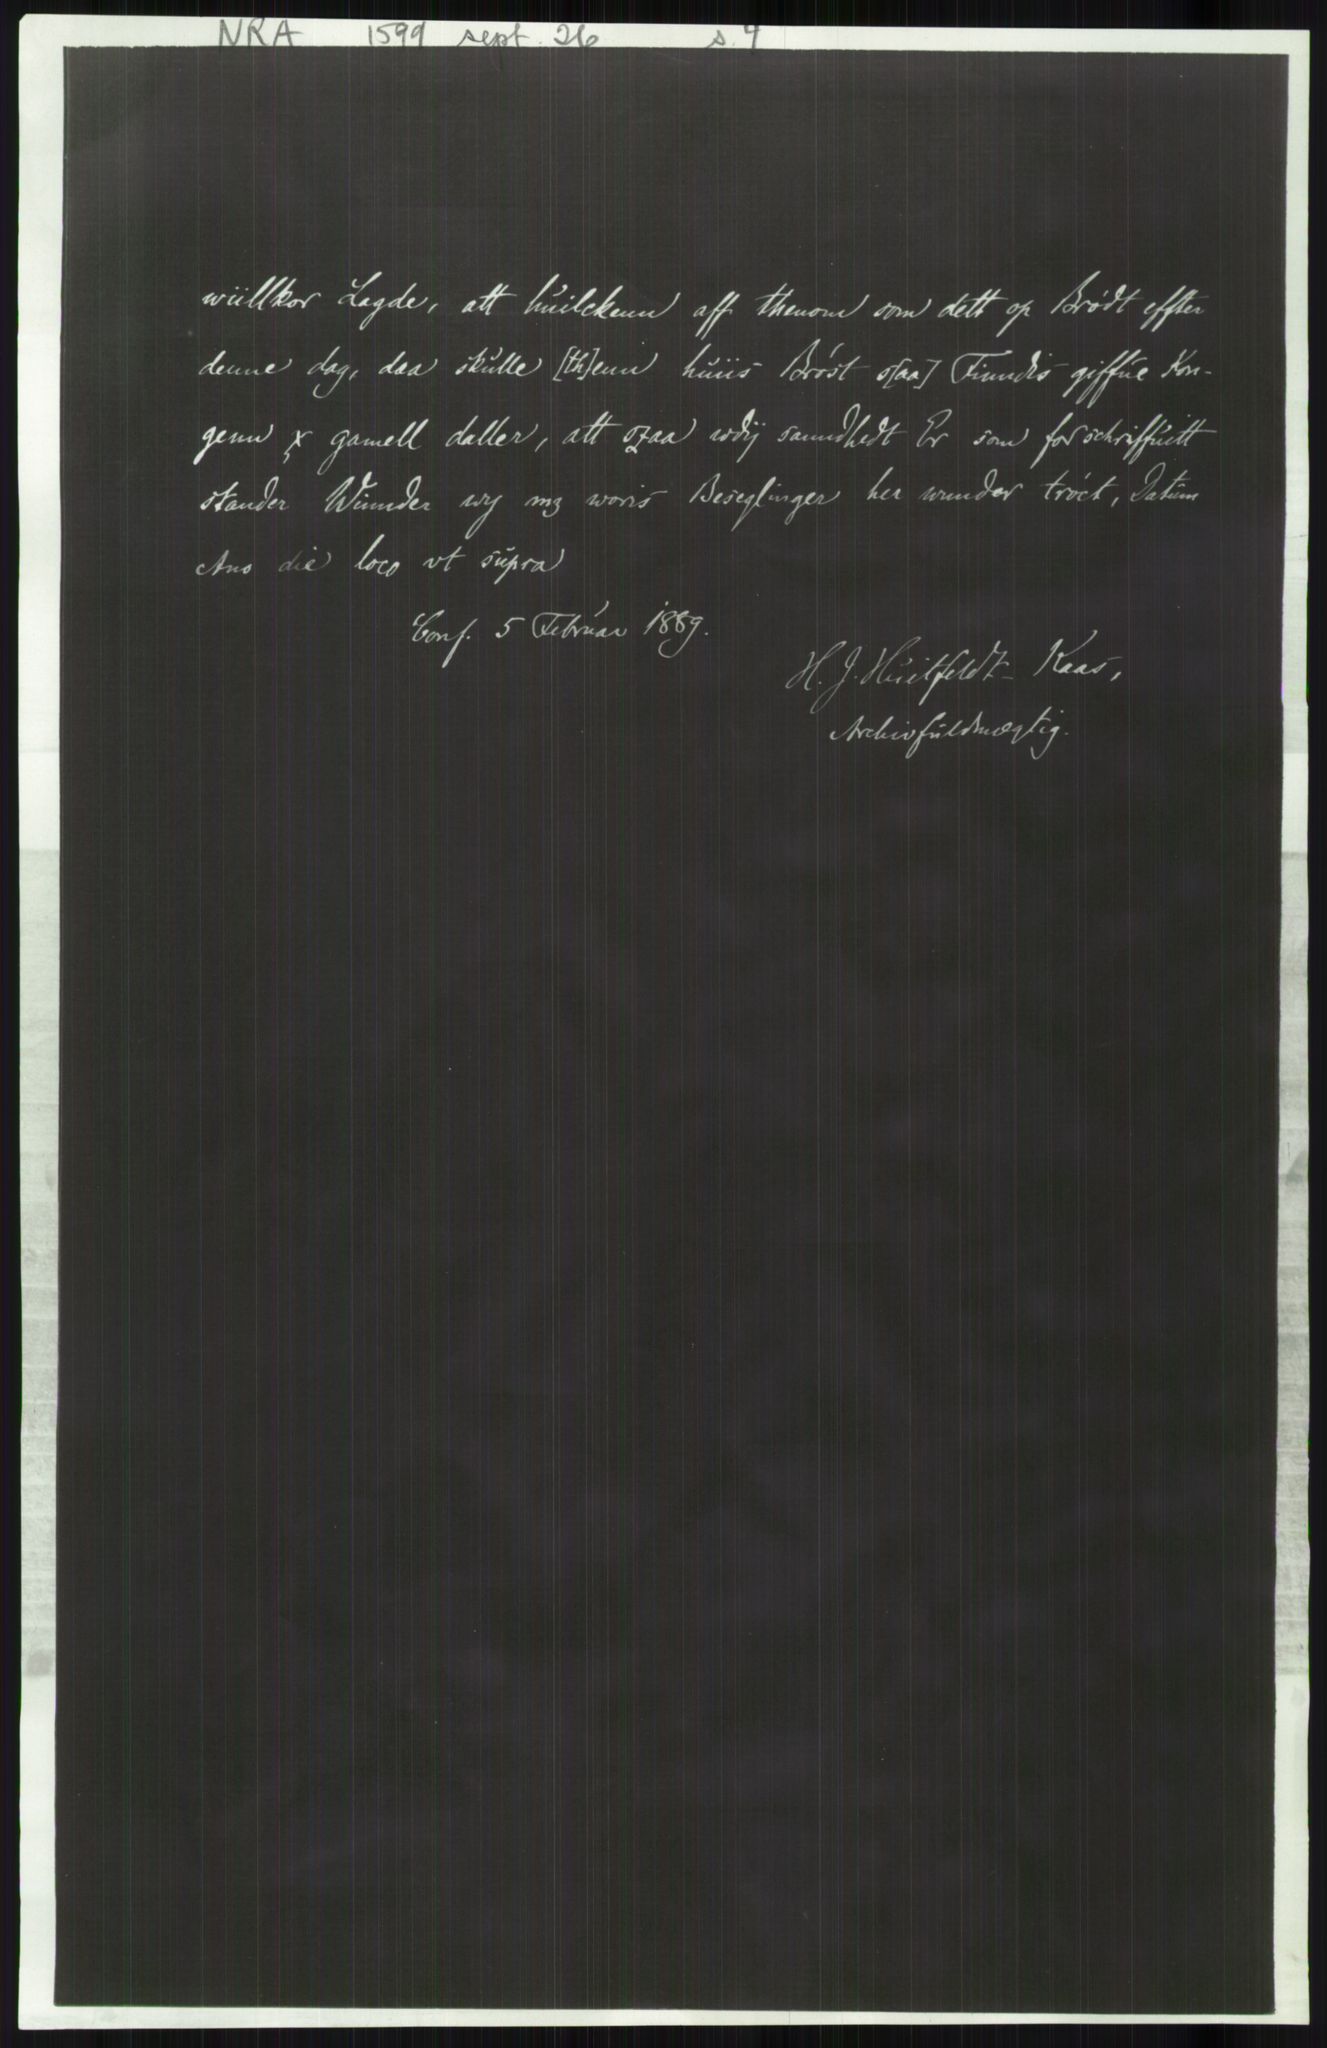 NRA 1599 sept. 26 s. 9
wiillkor Lagde, att huilckenn aff thenom som dett op Brødt effter
denne dag, daa skulle [th]enn huiis Brøst s[aa] Finndis giffue Kon-
genn x gamell daller, att szaa wdij sanndhedt Er som forschriffuitt
stander Winnder wy mz woris Beseglinger her wunder tröct, Datum
Ano die loco vt supra
Conf. 5 Februar 1889.
H. J. Huitfeldt-Kaas,
Archivfuldmægtig.